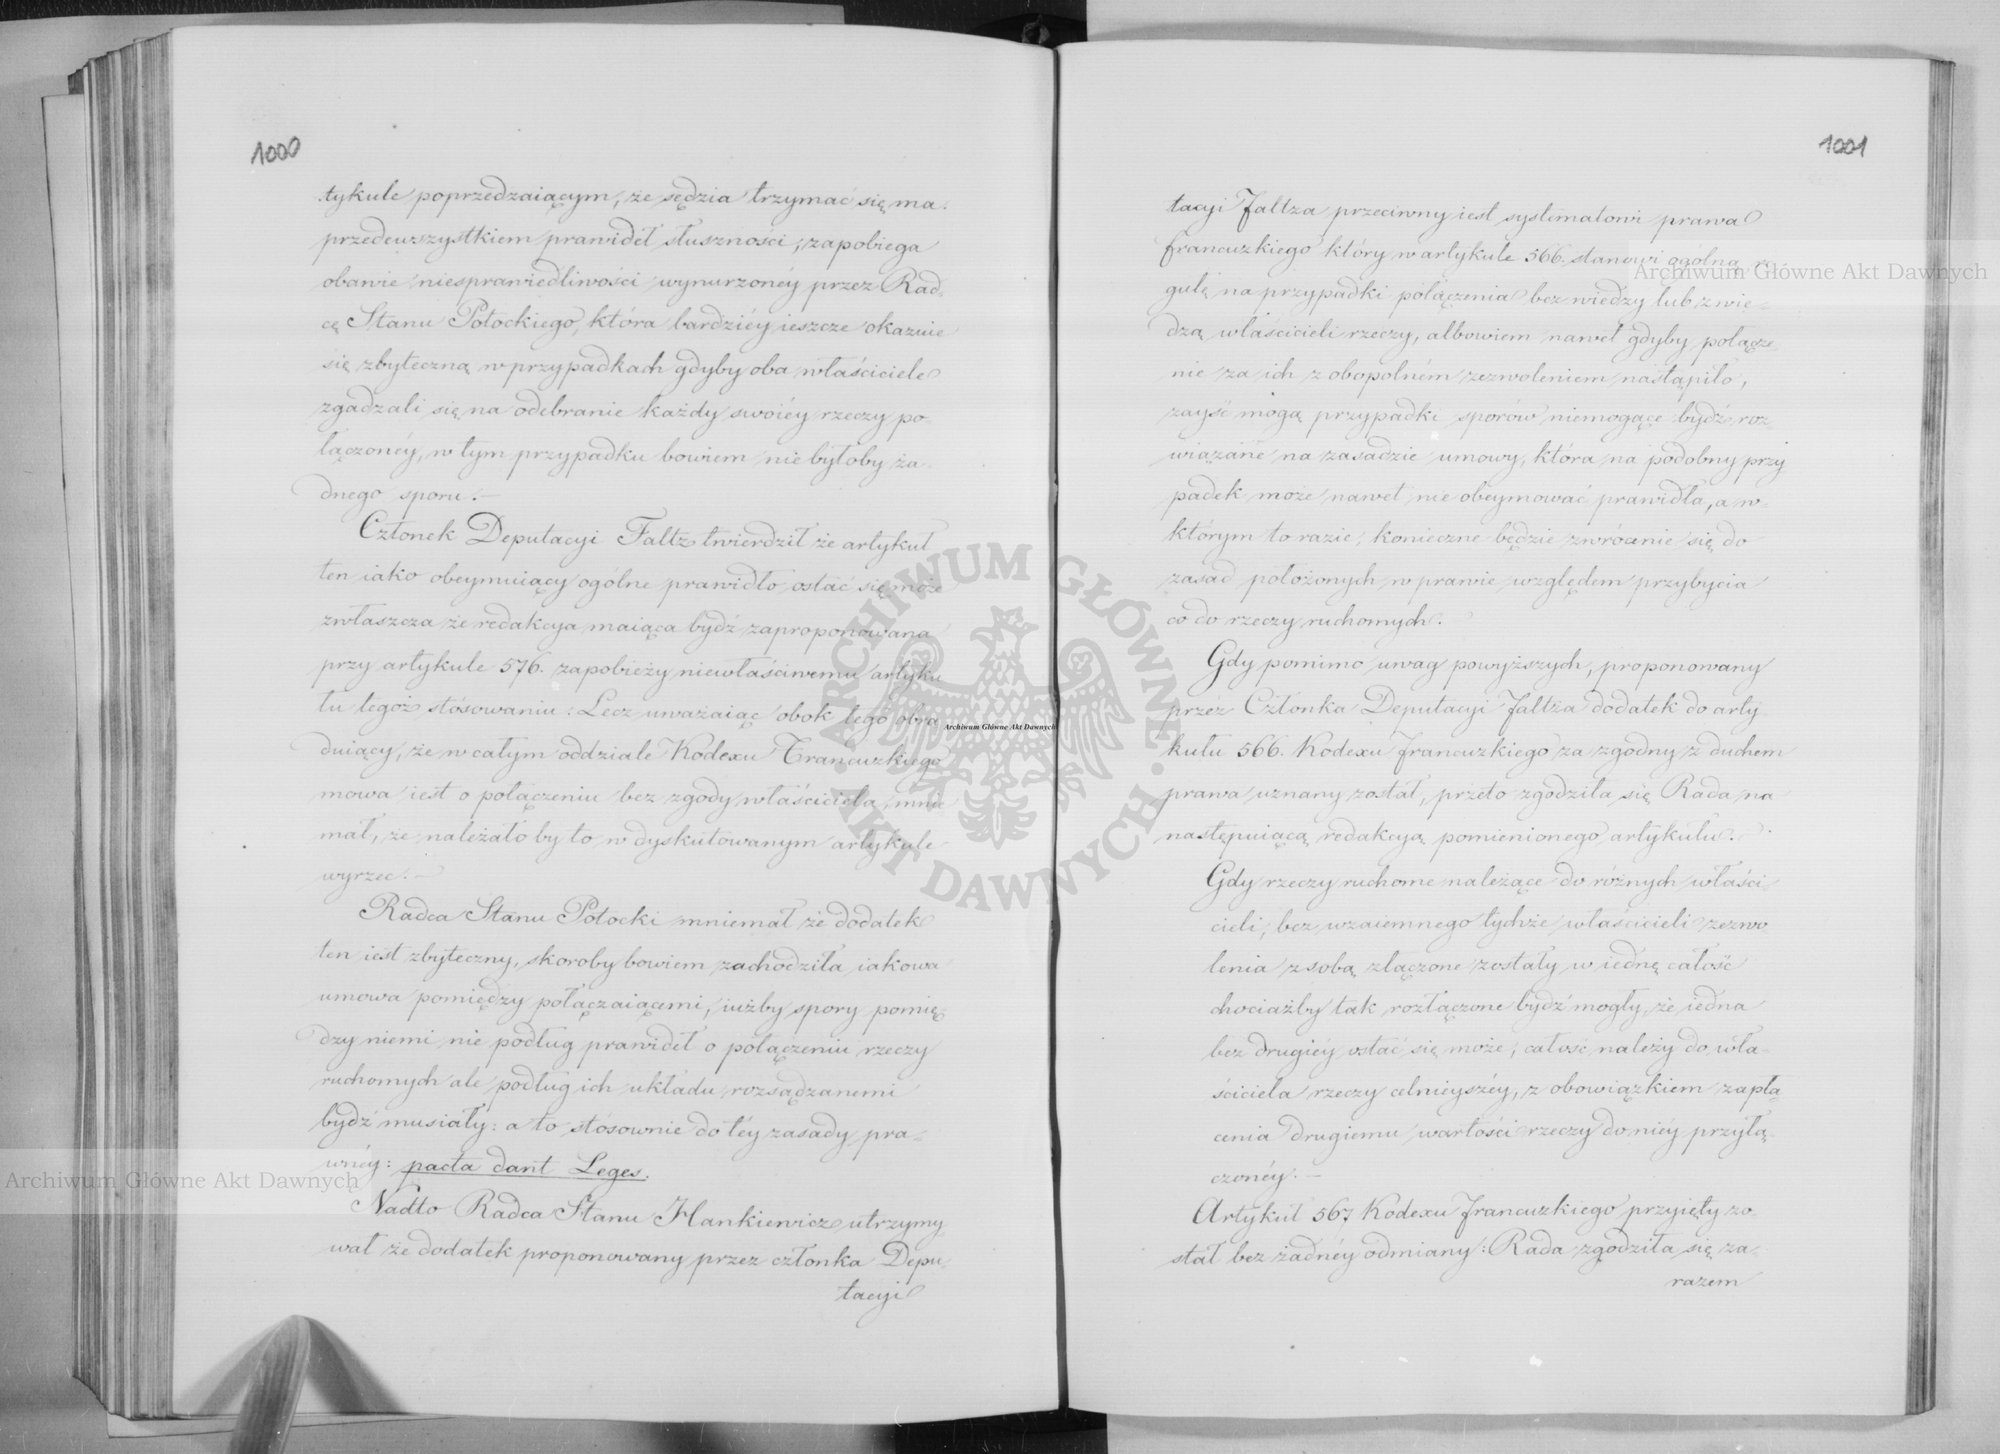 1000
tykule poprzedzaiącym, że sędzia trzymać się ma
przedewszystkiem prawideł słuszności, zapobiega
obawie niesprawiedliwości wynurzonéy przez Rad-
cę Stanu Potockiego, która bardziéy ieszcze okazuie
się zbyteczną w przypadkach gdyby oba właściciele
zgadzali się na odebranie każdy swoiéy rzeczy po-
łączonéy, w tym przypadku bowiem nie byłoby ża-
dnego sporu.—
Członek Deputacyi Faltz twierdził że artykuł
ten iako obeymuiący ogólne prawidło, ostać się może
zwłaszcza że redakcya maiąca bydź zaproponowana
przy artykule 576. zapobieży niewłaściwemu artyku
łu tegoż stósowaniu. Lecz uważaiąc obok tego obra
duiący, że w całym oddziale Kodexu Francuzkiego
mowa iest o połączeniu bez zgody właściciela, mnie
mał, że należało by to w dyskutowanym artykule
wyrzec.—
Radca Stanu Potocki mniemał że dodatek
ten iest zbyteczny, skoroby bowiem zachodziła iakowa
umowa pomiędzy połączaiącemi, iużby spory pomię-
dzy niemi nie podług prawideł o połączeniu rzeczy
ruchomych ale podług ich układu rozsądzanemi
bydź musiały: a to stósownie do téy zasady pra-
wnéy: pacta dant Leges.
Nadto Radca Stanu Hankiewicz utrzymy
wał że dodatek proponowany przez członka Depu-
tacyi
1001
tacyi Faltza przeciwny iest systematowi prawa
francuzkiego który w artykule 566. stanowi ogólną re
gułę na przypadki połączenia bez wiedzy lub z wie-
dzą właścicieli rzeczy, albowiem nawet gdyby połącze
nie za ich zobopolném zezwoleniem nastąpiło,
zayść mogą przypadki sporów niemogące bydź roz-
wiązane na zasadzie umowy, która na podobny przy
padek może nawet nie obeymować prawidła, a w
którym to razie, konieczne będzie zwrócenie się do
zasad położonych w prawie względem przybycia
co do rzeczy ruchomych.
Gdy pomimo uwag powyższych, proponowany
przez Członka Deputacyi Faltza dodatek do arty
kułu 566. Kodexu francuzkiego za zgodny z duchem
prawa uznany został, przeto zgodziła się Rada na
następuiącą redakcyą pomienionego artykułu.
Gdy rzeczy ruchome należące do różnych właści
cieli, bez wzaiemnego tychże właścicieli zezwo
lenia z sobą złączone zostały w iednę całość
chociażby tak rozłączone bydź mogły, że iedna
bez drugiéy ostać się może, całość należy do wła-
ściciela rzeczy celnieyszéy, z obowiązkiem zapła-
cenia drugiemu wartości rzeczy do niéy przyłą-
czonéy.—
Artykuł 567 Kodexu francuzkiego przyięty zo-
stał bez żadnéy odmiany: Rada zgodziła się za-
razem
Archiwum Główne Akt Dawnych
Archiwum Główne Akt Dawnych
Archiwum Główne Akt Dawnych
ARCHIWUM GŁÓWNE AKT DAWNYCH